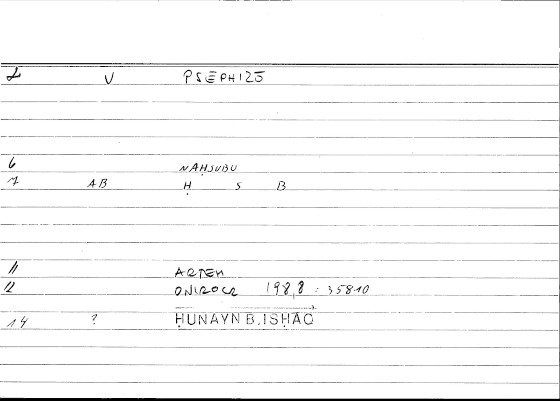 2 V PSEPHIZŌ
6 NAḤSUBU
7 AB Ḥ S B
11 ARTEM
12 ONIROCR 198,8 : 358.10
14 ? ḤUNAYN B.ISḤĀQ